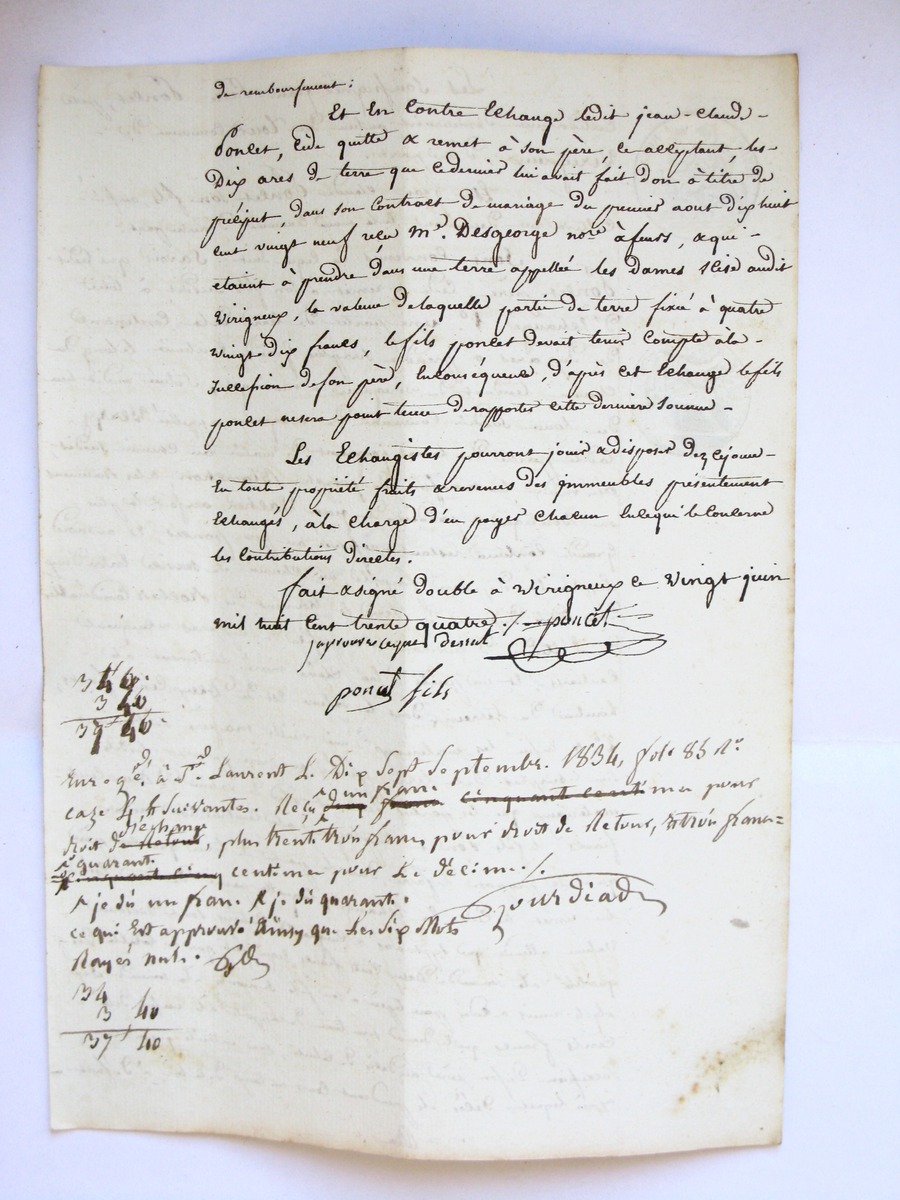 de remboursement :
Et En Contre Echange ledit jean-claude
Poncet, Cède quitte & remet à son père, ce acceptant, les
Dix ares de terre que ce dernier lui avait fait don à titre de
préciput, dans son Contract de mariage du premier aout dix huit
cent vingt neuf reçu Me. Desgeorge nore. à feurs, & qui
etaient à prendre dans une terre appellée les dames sise audit
Virigneux, la valeur de laquelle partie de terre fixée à quatre
vingt dix francs, le fils poncet devait tenir Compte à la
Succession de son père, En conséquence, d'après cet Echange le fils
poncet ne sera point tenu de rapporter cette derniere Somme
Les Echangistes pourront jouir & disposer dez ce jour
En toute propriété fruits & revenus des jmmeubles présentement
Echangés, à la charge d'en payer Chacun En ce qui le Concerne
les Contributions directes.
fait & signé double à Virigneux ce Vingt juin
mil huit Cent trente quatre ./. poncet
japrouve ce que dessut
poncet fils
34 0
3 40
37 40
Enregé. à St. Laurent Le Dix Sept Septembre 1834, fol. 83 Ro.
caze 4, et Suivantes. Reçu un franc cinquante centimes pour
droit d'échange, plus trente trois francs pour droit de Retour, & trois francs
quarante
cinquante cinq centimes pour Le décime ./.
je dis un franc & je dis quarante.
ce qui Est approuvé Ainsy que Les Six Mots
Rayés nuls.
Gourdiad
34
3 40
37 40